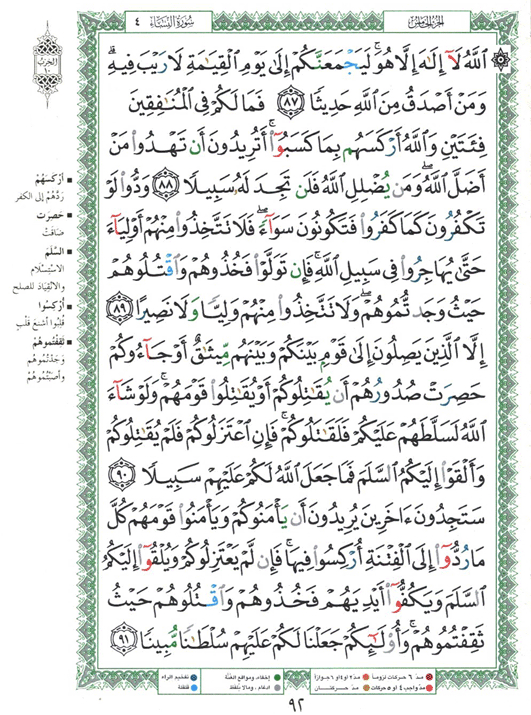 سُورَةُ النِّسَاءِ ٤
الجزء الخامس
اللَّهُ لَآ إِلَٰهَ إِلَّا هُوَ ۚ لَيَجْمَعَنَّكُمْ إِلَىٰ يَوْمِ الْقِيَٰمَةِ لَا رَيْبَ فِيهِ ۗ
وَمَنْ أَصْدَقُ مِنَ اللَّهِ حَدِيثًا ٨٧ فَمَا لَكُمْ فِى الْمُنَٰفِقِينَ
فِئَتَيْنِ وَاللَّهُ أَرْكَسَهُم بِمَا كَسَبُوٓا۟ ۚ أَتُرِيدُونَ أَن تَهْدُوا۟ مَنْ
أَضَلَّ اللَّهُ ۖ وَمَن يُضْلِلِ اللَّهُ فَلَن تَجِدَ لَهُۥ سَبِيلًا ٨٨ وَدُّوا۟ لَوْ
تَكْفُرُونَ كَمَا كَفَرُوا۟ فَتَكُونُونَ سَوَآءً ۖ فَلَا تَتَّخِذُوا۟ مِنْهُمْ أَوْلِيَآءَ
حَتَّىٰ يُهَاجِرُوا۟ فِى سَبِيلِ اللَّهِ ۚ فَإِن تَوَلَّوْا۟ فَخُذُوهُمْ وَاقْتُلُوهُمْ
حَيْثُ وَجَدتُّمُوهُمْ ۖ وَلَا تَتَّخِذُوا۟ مِنْهُمْ وَلِيًّا وَلَا نَصِيرًا ٨٩
إِلَّا الَّذِينَ يَصِلُونَ إِلَىٰ قَوْمٍۭ بَيْنَكُمْ وَبَيْنَهُم مِّيثَٰقٌ أَوْ جَآءُوكُمْ
حَصِرَتْ صُدُورُهُمْ أَن يُقَٰتِلُوكُمْ أَوْ يُقَٰتِلُوا۟ قَوْمَهُمْ ۚ وَلَوْ شَآءَ
اللَّهُ لَسَلَّطَهُمْ عَلَيْكُمْ فَلَقَٰتَلُوكُمْ ۚ فَإِنِ اعْتَزَلُوكُمْ فَلَمْ يُقَٰتِلُوكُمْ
وَأَلْقَوْا۟ إِلَيْكُمُ السَّلَمَ فَمَا جَعَلَ اللَّهُ لَكُمْ عَلَيْهِمْ سَبِيلًا ٩٠
سَتَجِدُونَ ءَاخَرِينَ يُرِيدُونَ أَن يَأْمَنُوكُمْ وَيَأْمَنُوا۟ قَوْمَهُمْ كُلَّ
مَا رُدُّوٓا۟ إِلَى الْفِتْنَةِ أُرْكِسُوا۟ فِيهَا ۚ فَإِن لَّمْ يَعْتَزِلُوكُمْ وَيُلْقُوٓا۟ إِلَيْكُمُ
السَّلَمَ وَيَكُفُّوٓا۟ أَيْدِيَهُمْ فَخُذُوهُمْ وَاقْتُلُوهُمْ حَيْثُ
ثَقِفْتُمُوهُمْ ۚ وَأُو۟لَٰٓئِكُمْ جَعَلْنَا لَكُمْ عَلَيْهِمْ سُلْطَٰنًا مُّبِينًا ٩١
الحزب
١٠
أَرْكَسَهُمْ
رَدَّهُمْ إلى الكفر
حَصِرَت
ضاقَتْ
السَّلَمَ
الاستِسْلام
والانْقِياد للصلح
أُرْكِسُوا
قُلِبُوا أَشنَعَ قَلْبٍ
ثَقِفْتُمُوهُمْ
وَجَدْتُموهُم
وأصَبْتُموهُمْ
مدّ ٦ حركات لزوماً
مدّ ٢ أو ٤ أو ٦ جوازاً
إخفاء، ومواقع الغُنَّة
تفخيم الراء
مدّ واجب ٤ أو ٥ حركات
مدّ حركتـان
إدغام، ومالا يلفظ
قلقلة
٩٢